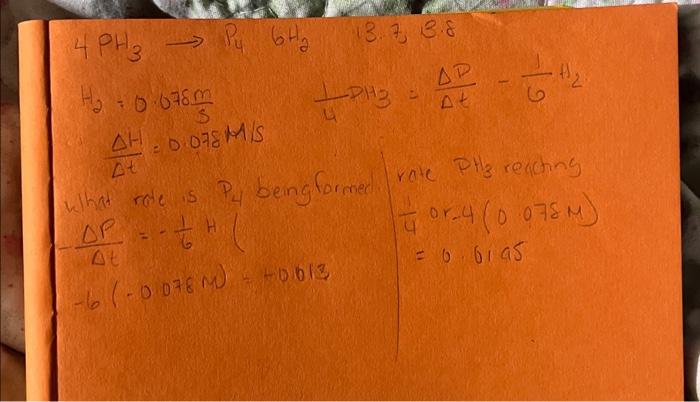 4 PH3 → P4 6H2 13.7, 13.8
H2 = 0.078 m/s
1/4 PH3 = ΔP/Δt - 1/6 H2
ΔH/Δt = 0.078 M/S
What rate is P4 being formed
-ΔP/Δt = -1/6 H (
-6 (-0.078 M) = +0.013
rate PH3 reacting
1/4 or -4 (0.078 M)
= 0.0195